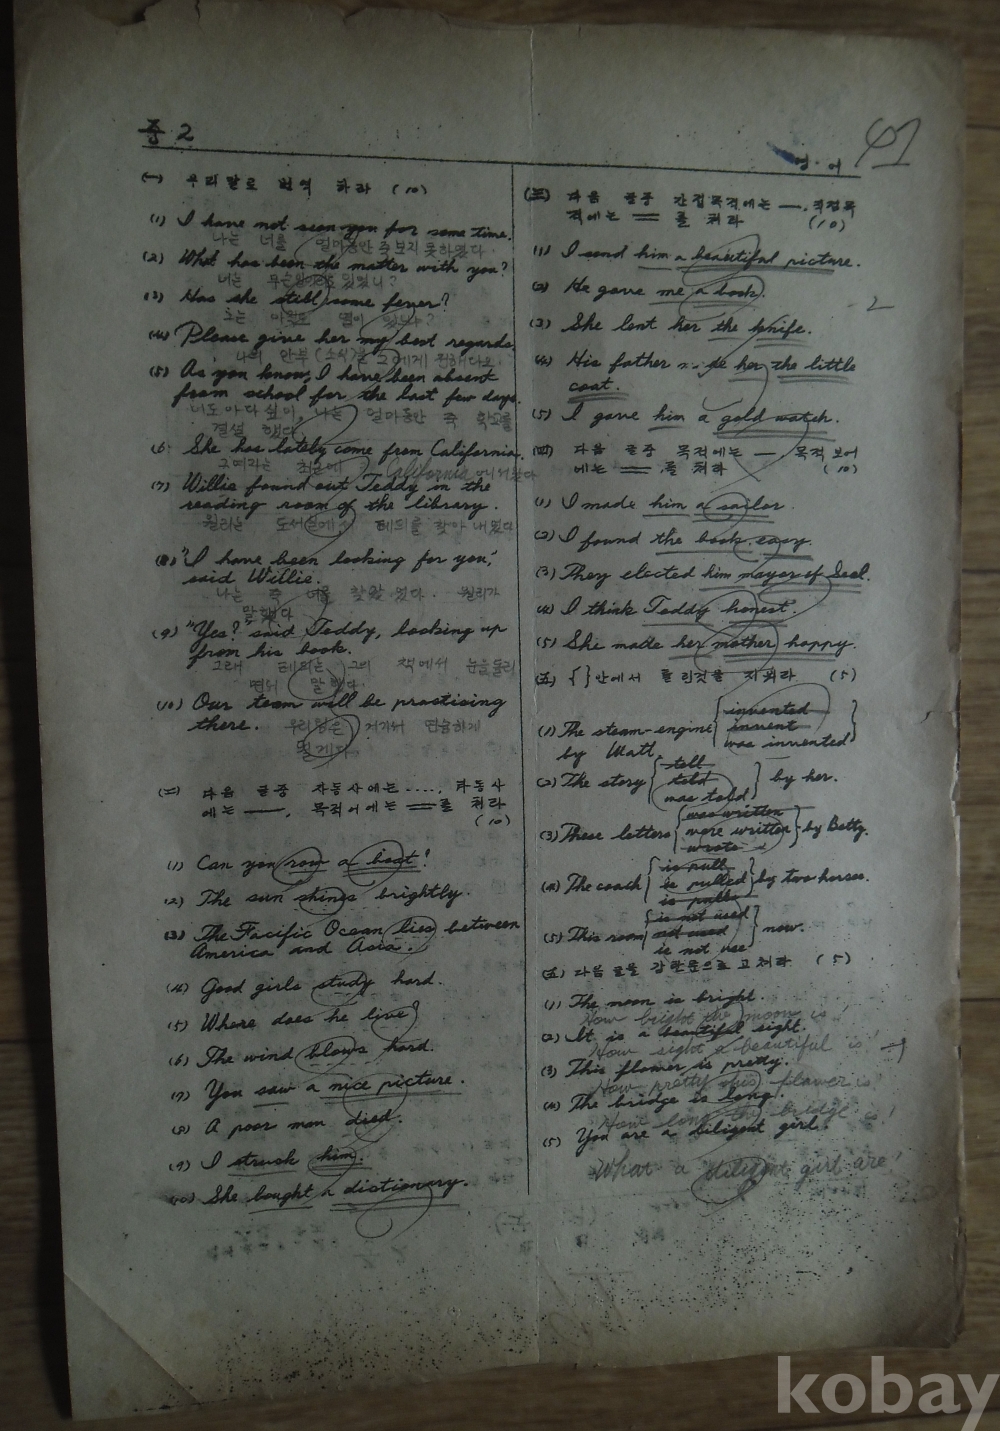 중 2
영·어
47
(一) 우리말로 번역 하라 (10)
(1) I have not seen you for some time.
나는 너를 얼마동안 주 보지 못하였다.
(2) What has been the matter with you?
너는 무슨 있었니?
(3) Has she still some fever?
아직도 열이 있느냐?
(4) Please give her my best regards.
나의 안부(소식)을 그에게 전해다오.
(5) As you know, I have been absent
from school for the last few days.
너도 아다싶이, 나는 얼마동안 죽 학교를
결석 했다.
(6) She has lately come from California.
그여자는 최근에 California
(7) Willie found out Teddy in the
reading room of the library.
윌리는 도서실에서 테디를 찾아 내었다
(8) "I have been looking for you,"
said Willie.
나는 죽 너를 찾았었다. 윌리가
말했다
(9) "Yes?" said Teddy, looking up
from his book.
그래 테디는 그의 책에서 눈을 돌리
면서 말했다.
(10) Our team will be practising
there.
우리팀은 거기서 연습하게
될게다.
(二) 다음 글중 자동사에는 ...., 타동사
에는 —, 목적어에는 ═를 쳐라
(10)
(1) Can you row a boat?
(2) The sun shines brightly.
(3) The Pacific Ocean lies between
America and Asia.
(4) Good girls study hard.
(5) Where does he live?
(6) The wind blows hard.
(7) You saw a nice picture.
(8) A poor man died.
(9) I struck him.
(10) She bought a dictionary.
(三) 다음 글중 간접목적에는 —, 직접목
적에는 ═ 를 쳐라 (10)
(1) I send him a beautiful picture.
(2) He gave me a book.
(3) She lent her the knife.
2
(4) His father her the little
coat.
(5) I gave him a gold watch.
(四) 다음 글중 목적에는 —, 목적 보어
에는 ═ 를 쳐라 (10)
(1) I made him a sailor.
(2) I found the book easy.
(3) They elected him mayor of Seoul.
(4) I think Teddy honest.
(5) She made her mother happy.
(五) { }안에서 틀린것을 지워라 (5)
(1) The steam-engine { invented
invent
was invented }
by Watt.
(2) The story { tell
told
was told } by her.
(3) These letters { was written
were written
wrote } by Betty.
(4) The coach { is pull
is pulled
is pulls } by two horses.
(5) This room { is not used
not used
is not use } now.
(五) 다음 글을 감탄문으로 고쳐라 (5)
(1) The moon is bright.
How bright the moon is!
(2) It is a beautiful sight.
How sight a beautiful is!
(3) This flower is pretty.
How pretty this flower is!
(4) The bridge is long.
How long the bridge is!
(5) You are a diligent girl.
What a diligent girl are!
kobay